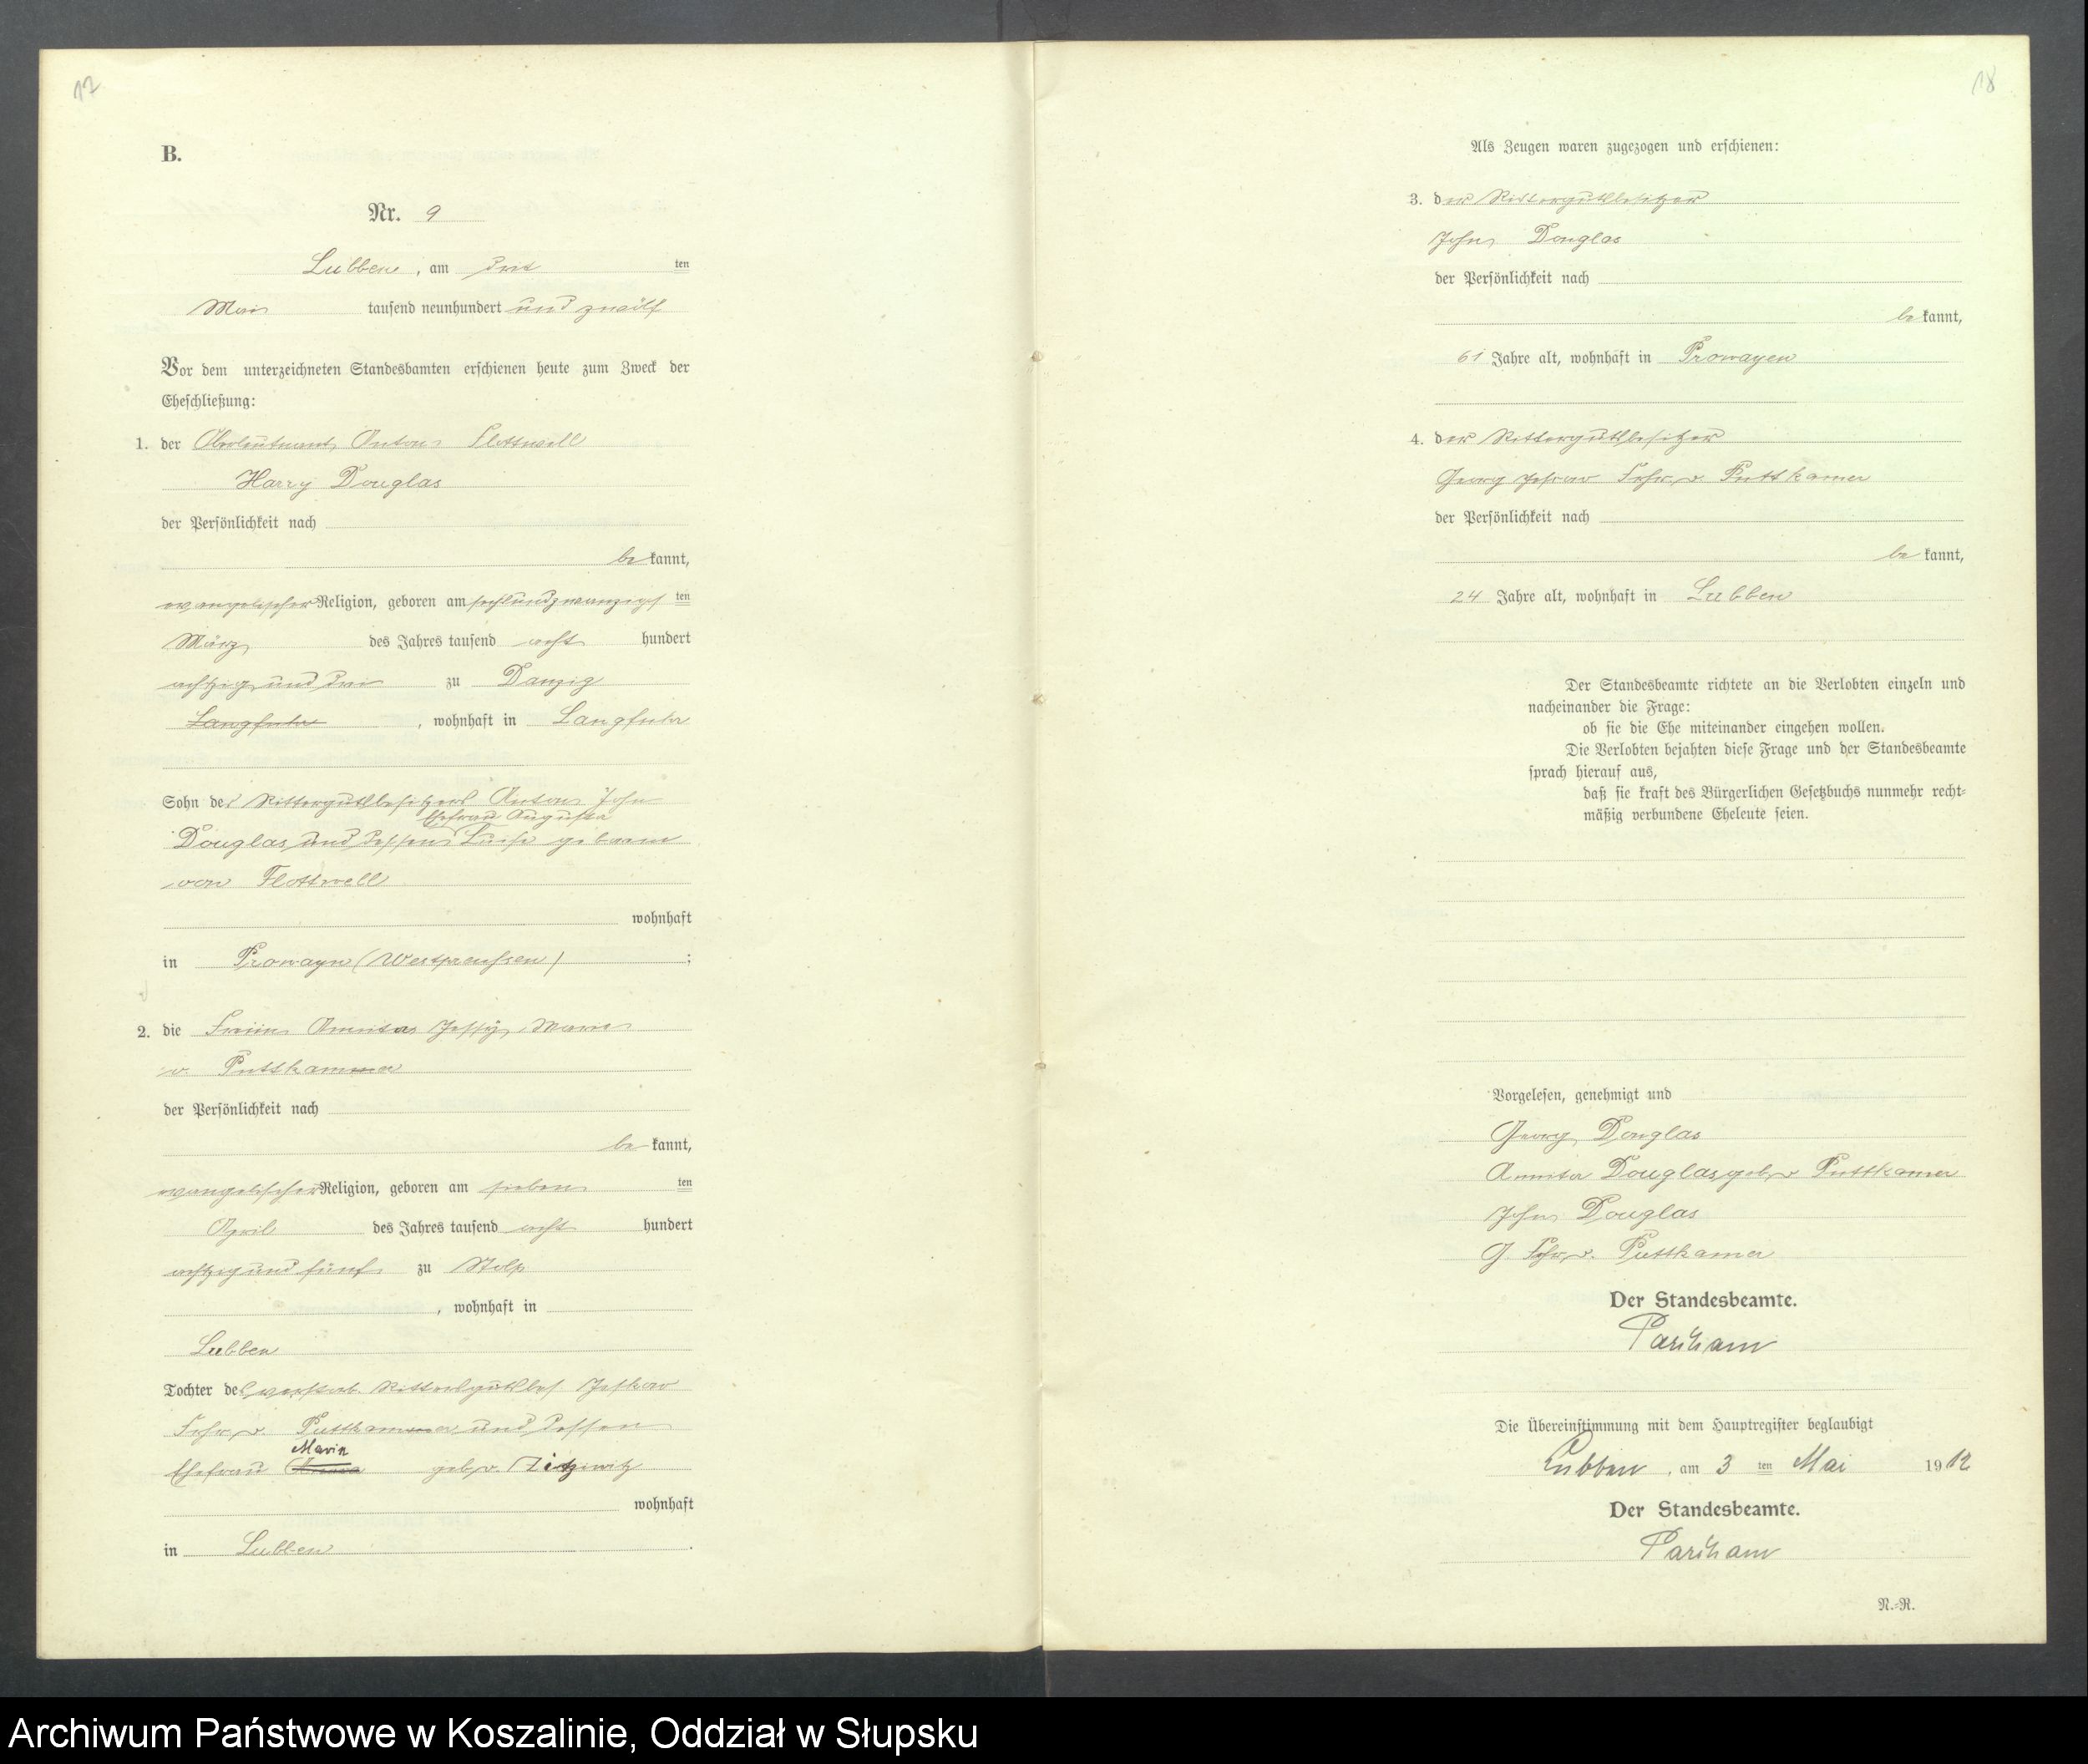 17
B.
Nr. 9
Lubben, am drit ten
Mai tausend neunhundert und zwölf
Vor dem unterzeichneten Standesbamten erschienen heute zum Zweck der
Eheschließung:
1. der Oberleutnant Anton Flottwell
Harry Douglas
der Persönlichkeit nach
be kannt,
evangelischer Religion, geboren am sechsundzwanzigs ten
März des Jahres tausend acht hundert
achtzig und drei zu Danzig
Langfuhr, wohnhaft in Langfuhr
Sohn des Rittergutsbesitzers Anton John
Ehefrau Augusta
Douglas und dessen Luise geborene
von Flottwell
wohnhaft
in Prowayn (Westpreußen) ;
2. die Freiin Annita Jessy Marie
v. Puttkammer
der Persönlichkeit nach
be kannt,
evangelischer Religion, geboren am sieben ten
April des Jahres tausend acht hundert
achtzig und fünf zu Stolp
, wohnhaft in
Lubben
Tochter des verstorb. Rittergutsbes. Jeskow
Frhr. v. Puttkammer und dessen
Marie
Ehefrau geb. v. Zitzewitz
wohnhaft
in Lubben .
18
Als Zeugen waren zugezogen und erschienen:
3. der Rittergutsbesitzer
John Douglas
der Persönlichkeit nach
be kannt,
61 Jahre alt, wohnhaft in Prowayen
4. der Rittergutsbesitzer
Georg Jeskow Frhr. v. Puttkamer
der Persönlichkeit nach
be kannt,
24 Jahre alt, wohnhaft in Lubben
Der Standesbeamte richtete an die Verlobten einzeln und
nacheinander die Frage:
ob sie die Ehe miteinander eingehen wollen.
Die Verlobten bejahten diese Frage und der Standesbeamte
sprach hierauf aus,
daß sie kraft des Bürgerlichen Gesetzbuchs nunmehr recht-
mäßig verbundene Eheleute seien.
Vorgelesen, genehmigt und
Georg Douglas
Annita Douglas, geb. v Puttkamer
John Douglas
G. Frhr. v. Puttkamer
Der Standesbeamte.
Die Übereinstimmung mit dem Hauptregister beglaubigt
Lubben, am 3 ten Mai 1912
Der Standesbeamte.
N.-R.
Archiwum Państwowe w Koszalinie, Oddział w Słupsku